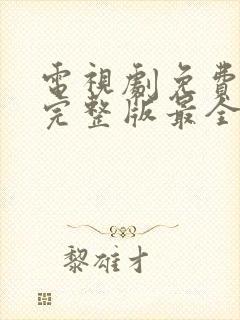 電視劇免費
完整版最全
黎雄才